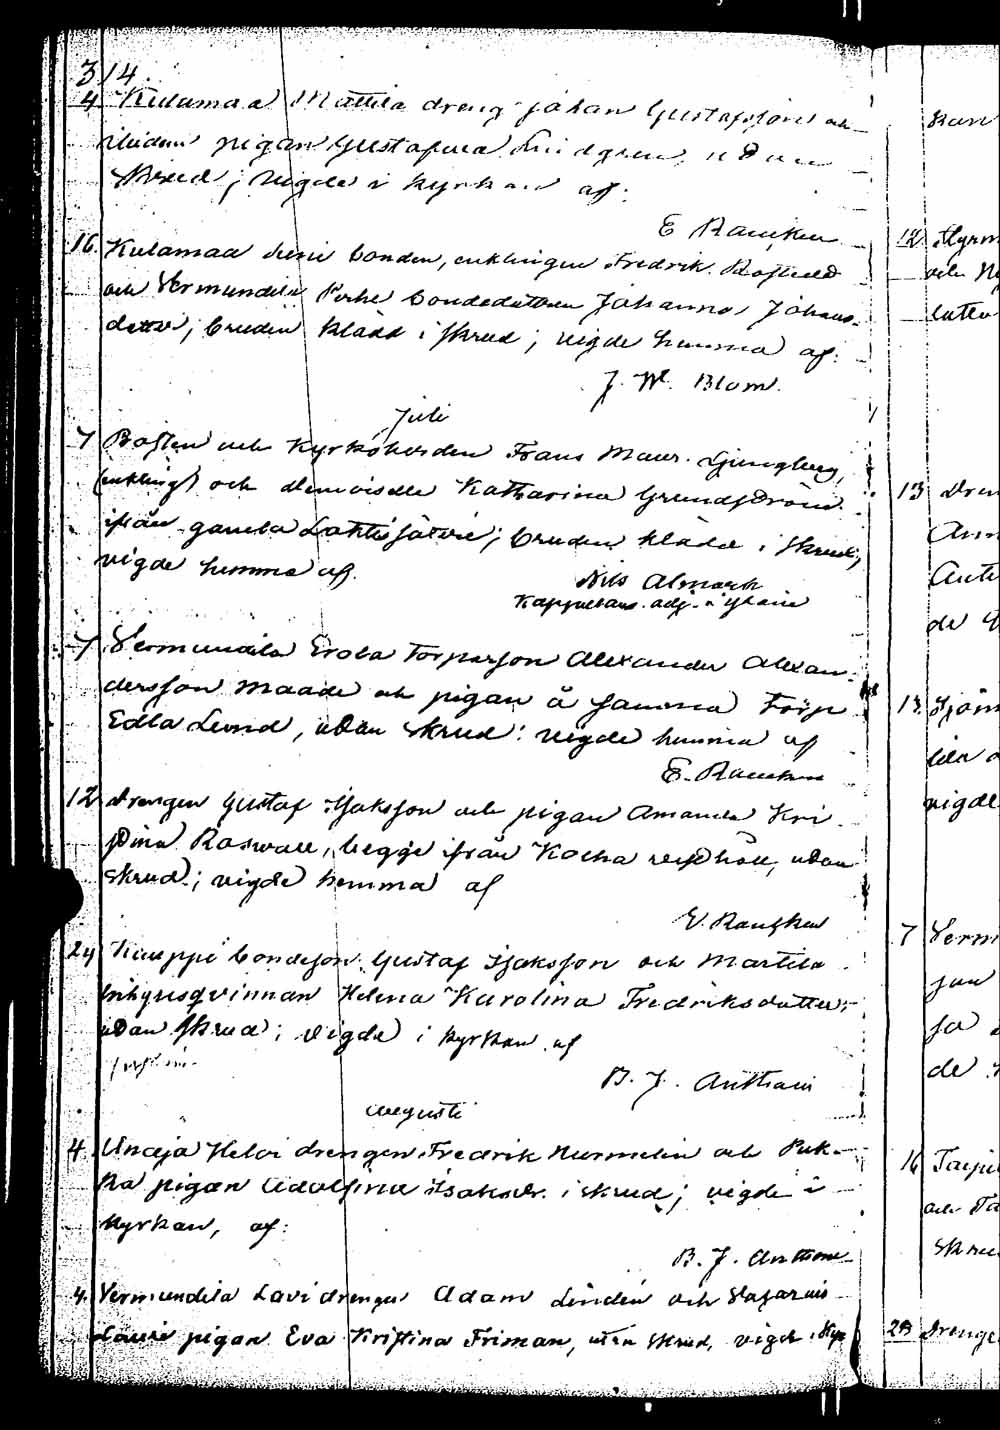 314.
4 Kulamaa Mattila dreng Johan Gustafsson och
pigan Gustafva Lindgren, utan
skrud; vigde i kyrkan af:
E Rancken
16. Kulamaa bonden, enklingen Fredrik
och Vermundila Perhe bondedottren Johanna Johans-
dotter; bruden klädd i skrud; vigde hemma af:
J. W. Blom.
Juli
7 Prosten och Kyrkoherden Frans Maur. Ljungberg,
(enkling) och demoiselle Katharina Grundström
ifrån gamla Lahtisjärvi; bruden klädd i skrud;
vigde hemma af.
Nils Almark
Kappellans. adj. i
7 Vermundila Erola Torparson Alexander Alexan-
dersson Maade och pigan å samma Torp
Edla Lund, utan skrud: vigde hemma af
E. Rancken
12 drengen Gustaf Isaksson och pigan Amanda Kri-
stina Roswall, begge ifrån Kocha utan
skrud; vigde hemma af
E. Rancken
24 Kauppi bondeson Gustaf Isaksson och Martila
Inhyresqvinnan Helena Karolina Fredriksdotter;
utan skrud; vigde i kyrkan af
B. J. Anthoni
Augusti
4. Unaja Helvi drengen Fredrik Nurmelin och Puk-
ka pigan Adolfina Isaksdr. i skrud; vigde i
Kyrkan, af:
B. J. Anthoni
4. Vermundila Lavi drengen Adam Lindén och
Lauri pigan Eva Kristina Friman, utan skrud, vigde i Kyr
kan
12.
och
13 Dren
de
13.
lila
vigde
7 Verm
de
16
och Ta
skru
28 Drenge